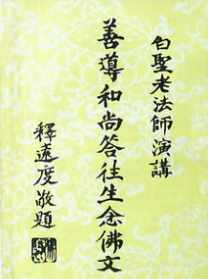 白聖老法師演講
善導和尚答往生念佛文
釋遠度敬題